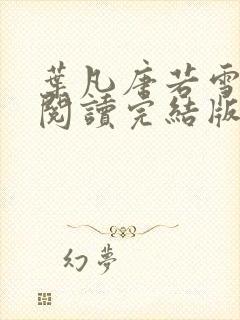 葉凡唐若雪
閱讀完結版
幻夢